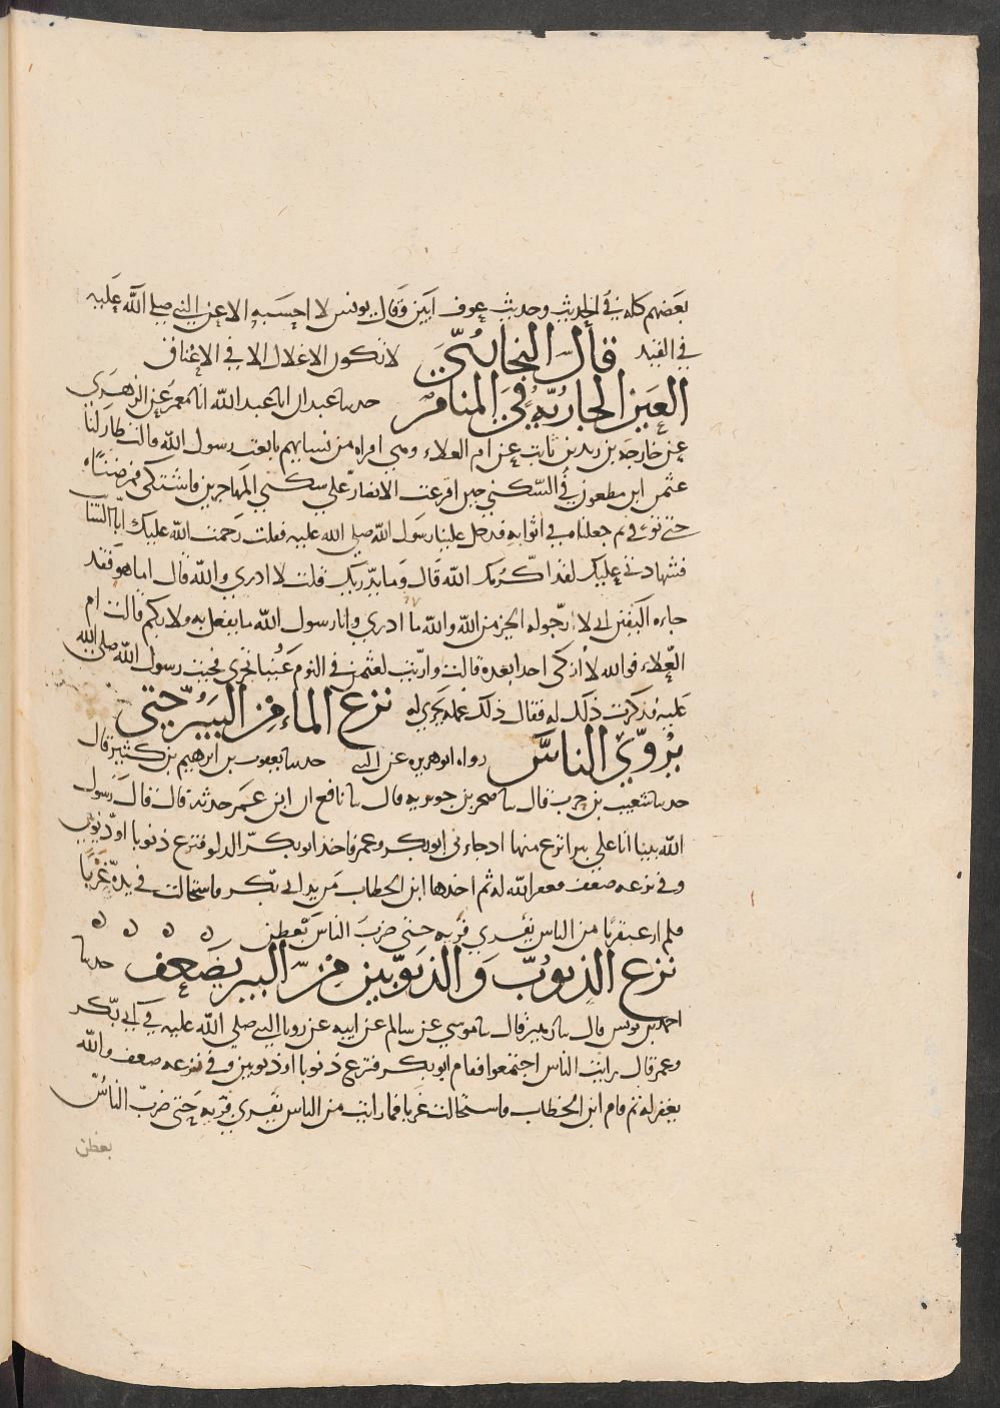 بعضهم كله في الحديث وحديث عوف ابين وقال يونس لا احسبه الا عن النبي صلي الله عليه
في القيد قال البخاري لا تكون الاغلال الا في الاعناق
العين الجارية في المنام حدثنا عبدان انا عبد الله انا معمر عن الزهري
عن خارجه بن زيد بن ثابت عن ام العلاء وهي امراه من نسايهم بايعت رسول الله قالت طار لنا
عثمن ابن مظعون في السكني حين اقرعت الانصار علي سكني المهاجرين فاشتكي فمرضناه
حتي توفي ثم جعلناه في اثوابه فدخل علينا رسول الله صلي الله عليه فقلت رحمت الله عليك ابا السائب
فشهادتي عليك لقد اكرمك الله قال وما يدريك قلت لا ادري والله قال اما هو فقد
جاءه اليقين اني لا رجو له الخير من الله والله ما ادري وانا رسول الله ما يفعل به ولا بكم قالت ام
العلاء فوالله لا ازكي احدا بعده قالت واريت لعثمن في النوم عينا تجري فجيت رسول الله صلي الله
عليه فذكرت ذلك له فقال ذلك عمله يجري له نزع الماء من البير حتي
يروي الناس رواه ابو هريره عن النبي حدثنا يعقوب بن ابرهيم بن كثير قال
حدثنا شعيب بن حرب قال ثنا صخر بن جويريه قال ثنا نافع ان ابن عمر حدثه قال قال رسول
الله بينا انا علي بير انزع منها اذ جاءني ابو بكر وعمر فاخذ ابو بكر الدلو فنزع ذنوبا او ذنوبين
وفي نزعه ضعف فغفر الله له ثم اخذها ابن الخطاب من يد ابي بكر فاستحالت في يده غربا
فلم ار عبقريا من الناس يفري فريه حتي ضرب الناس بعطن
نزع الذنوب والذنوبين من البير بضعف حدثنا
احمد بن يونس قال ثنا زهير قال ثنا موسي عن سالم عن ابيه عن رويا النبي صلي الله عليه في ابي بكر
وعمر قال رايت الناس اجتمعوا فقام ابو بكر فنزع ذنوبا او ذنوبين وفي نزعه ضعف والله
يغفر له ثم قام ابن الخطاب فاستحالت غربا فما رايت من الناس يفري فريه حتي ضرب الناس
بعطن